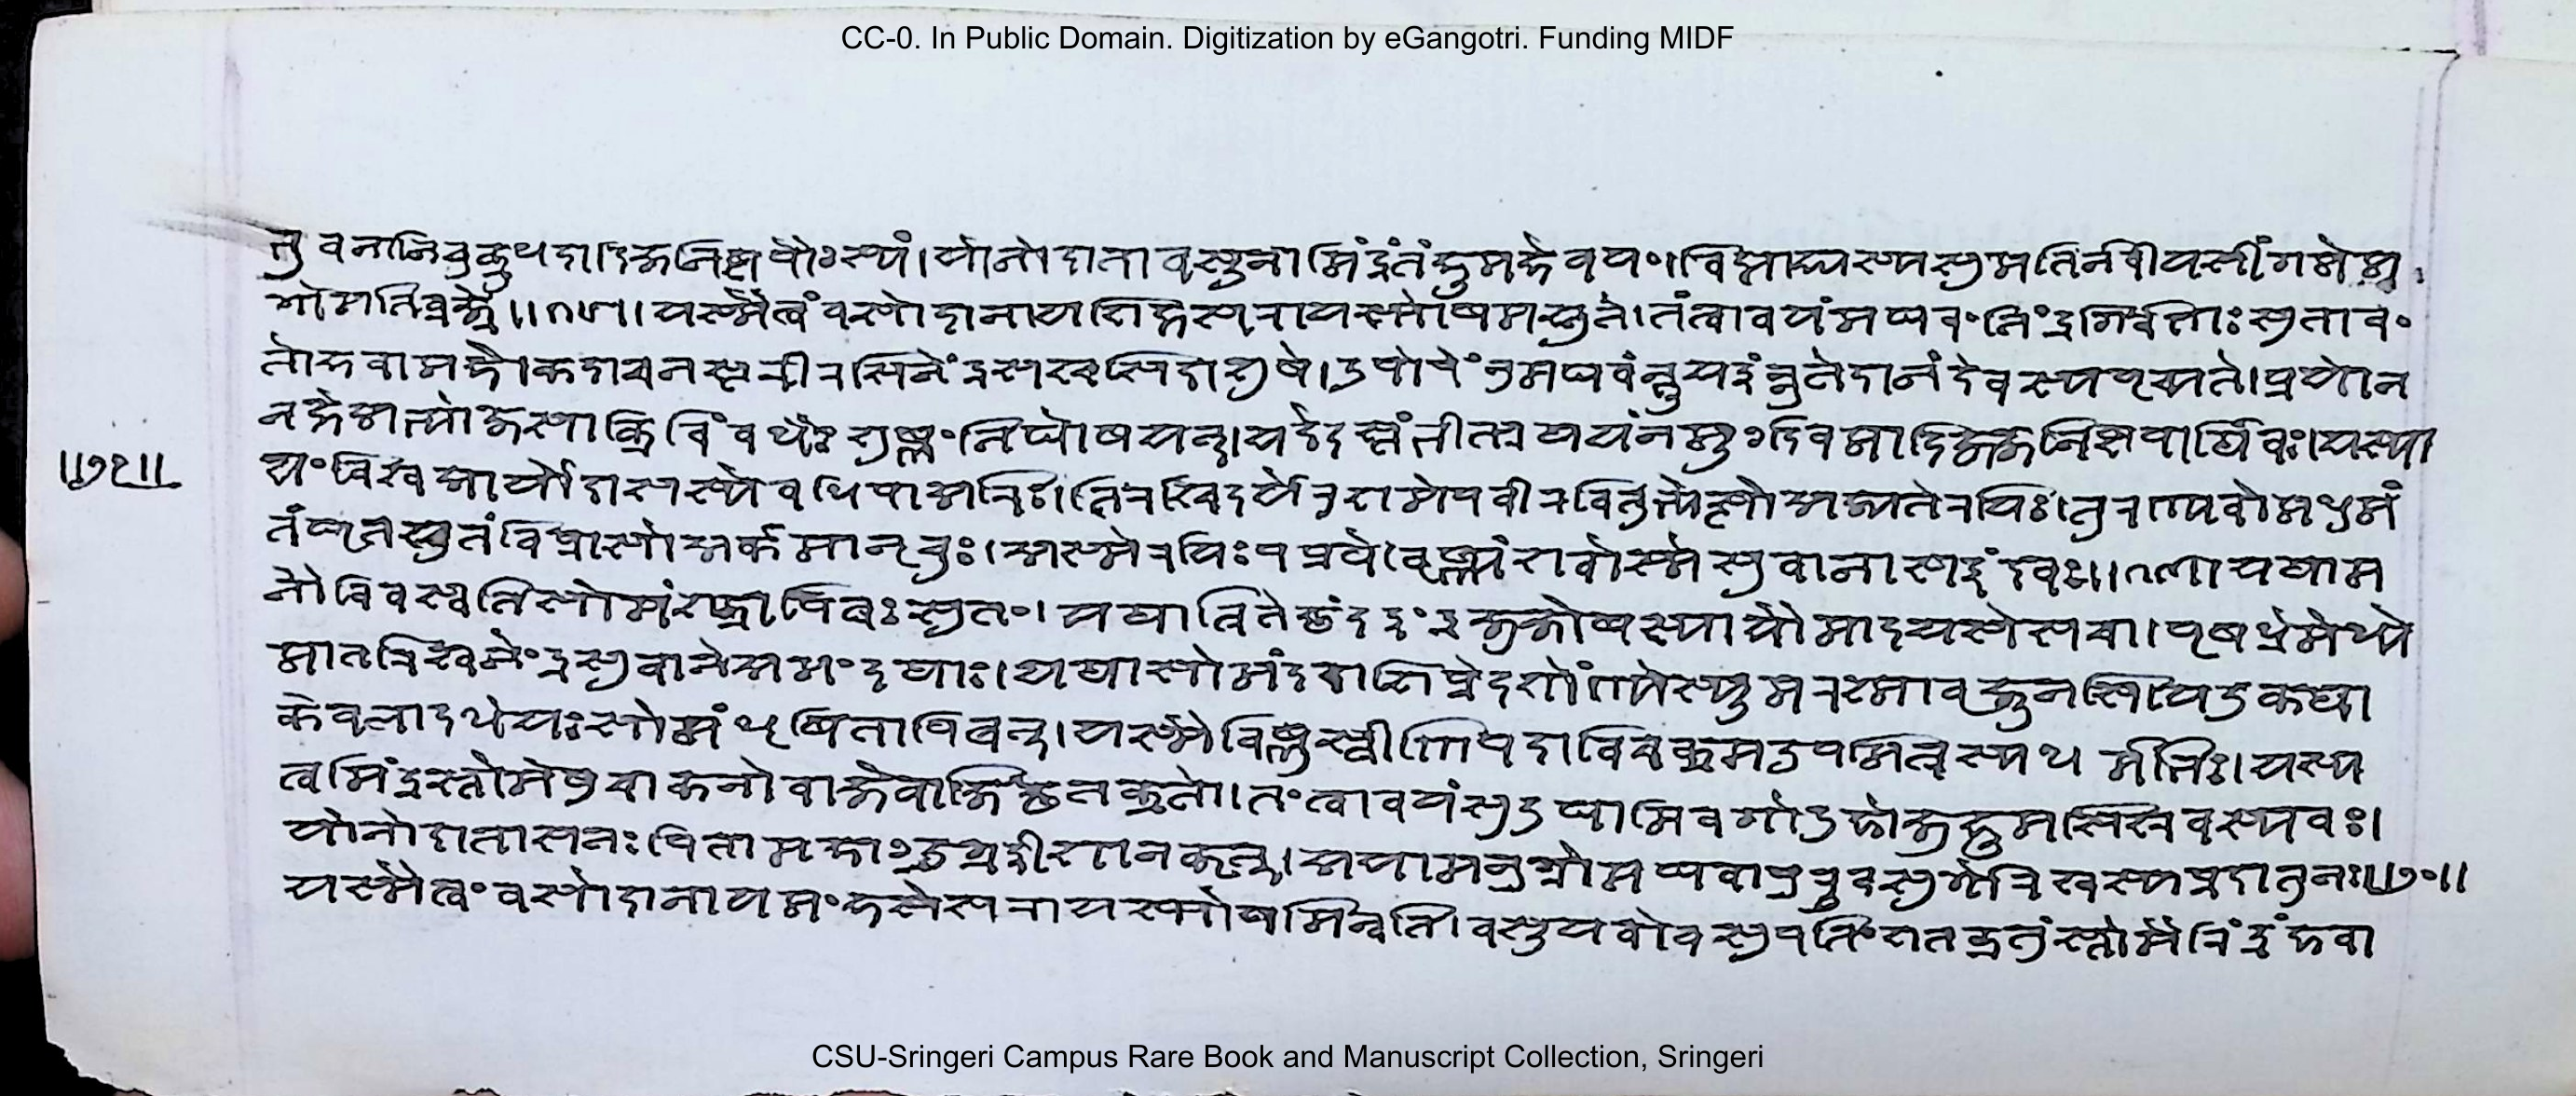 CC-0. In Public Domain. Digitization by eGangotri. Funding MIDF
यो नो दाता वसूनामिंद्रं तं हूमहे वयं। विद्मा ह्यस्य सुमतिं नवीयसीं गमेम
गोमति व्रजे॥१८॥ यस्मै त्वं वसो दानाय शिक्षसि स रायस्पोषमश्नुते। तं त्वा वयं मघवंनिंद्र गिर्वणः सुतावं
तो हवामहे। कदाचन स्तरीरसि नेंद्र सश्चसि दाशुषे। उपोपेंनु मघवंन्भूय इंन्नु ते दानं देवस्य पृच्यते। प्र यो न
नक्षे अभ्योजसा क्रिविं वधैः शुष्णं निघोषयन्। यदेदस्तंभीत्प्रथयंनमूं दिवमादिज्जनिष्ट पार्थिवः। यस्या
यं विश्व आर्यो दासः शेवधिपा अरिः। तिरश्चिदर्ये रुशमे पवीरवि तुभ्येत्सो अज्यते रयिः। तुरण्यवो मधुमं
तं घृतश्चुतं विप्रासो अर्कमानृचुः। अस्मे रयिः पप्रथे वृष्ण्यं शवोस्मे सुवानास इंदवः॥१९॥ यथा म
नौ विवस्वति सोमं शक्रापिबः सुतं। यथा त्रिते छंद इंद्र जुजोषस्यायौ मादयसे सचा। पृषध्रे मेध्ये
मातरिश्वनींद्र सुवाने अमंदथाः। यथा सोमं दशशिप्रे दशोण्ये स्यूमरश्मावृजूनसि। य उक्था
केवला दधे यः सोमं धृषितापिबत्। यस्मै विष्णुस्त्रीणि पदा विचक्रम उप मित्रस्य धर्मभिः। यस्य
त्वमिंद्र स्तोमेषु चाकनो वाजे वाजिंछतक्रतो। तं त्वा वयं सुदुघामिव गोदुहो जुहूमसि श्रवस्यवः।
यो नो दाता स नः पिता महाँ उग्र ईशानकृत्। अयामन्नुग्रो मघवा पुरूवसुर्गोरश्वस्य प्र दातु नः॥२०॥
॥७२॥
यस्मै त्वं वसो दानाय मंहसे स रायस्पोषमिन्वति। वसूयवो वसुपतिं शतक्रतुं स्तोमैरिंद्रं हवा
CSU-Sringeri Campus Rare Book and Manuscript Collection, Sringeri